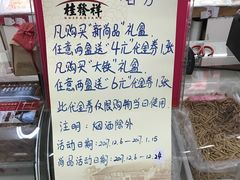 桂發祥
GUIFAXIANG
官方
凡购买“新尚品”礼盒
任意两盒送“4元”代金券1张
凡购买“大铁”礼盒
任意两盒送“6元”代金券1张
此代金券仅限购物当日使用
注明:烟酒除外
活动日期:2017.12.6-2017.1.15
尚品活动日期:2017.12.6-12.24